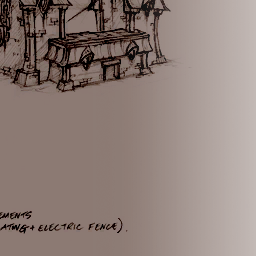 EMENTS
ATING + ELECTRIC FENCE).